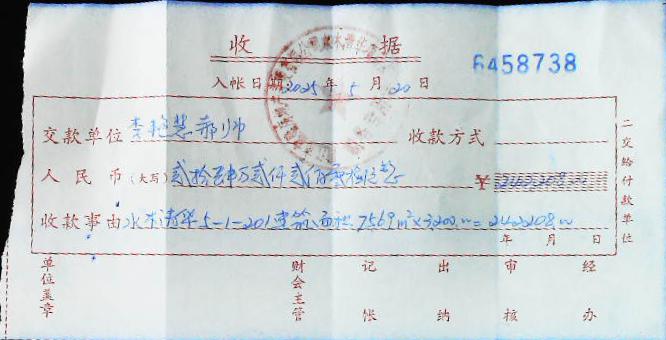 收 据
6458738
入帐日期 2025 年 5 月 20 日
交款单位 李艳慧 郝帅 收款方式
人民币(大写) 贰拾肆万贰仟贰佰零捌元整 ¥ 242208.00
收款事由 水木清华5-1-201建筑面积 75.69m²×3200.00=242208.00
年 月 日
二交给付款单位
单位盖章 财会主管 记帐 出纳 审核 经办